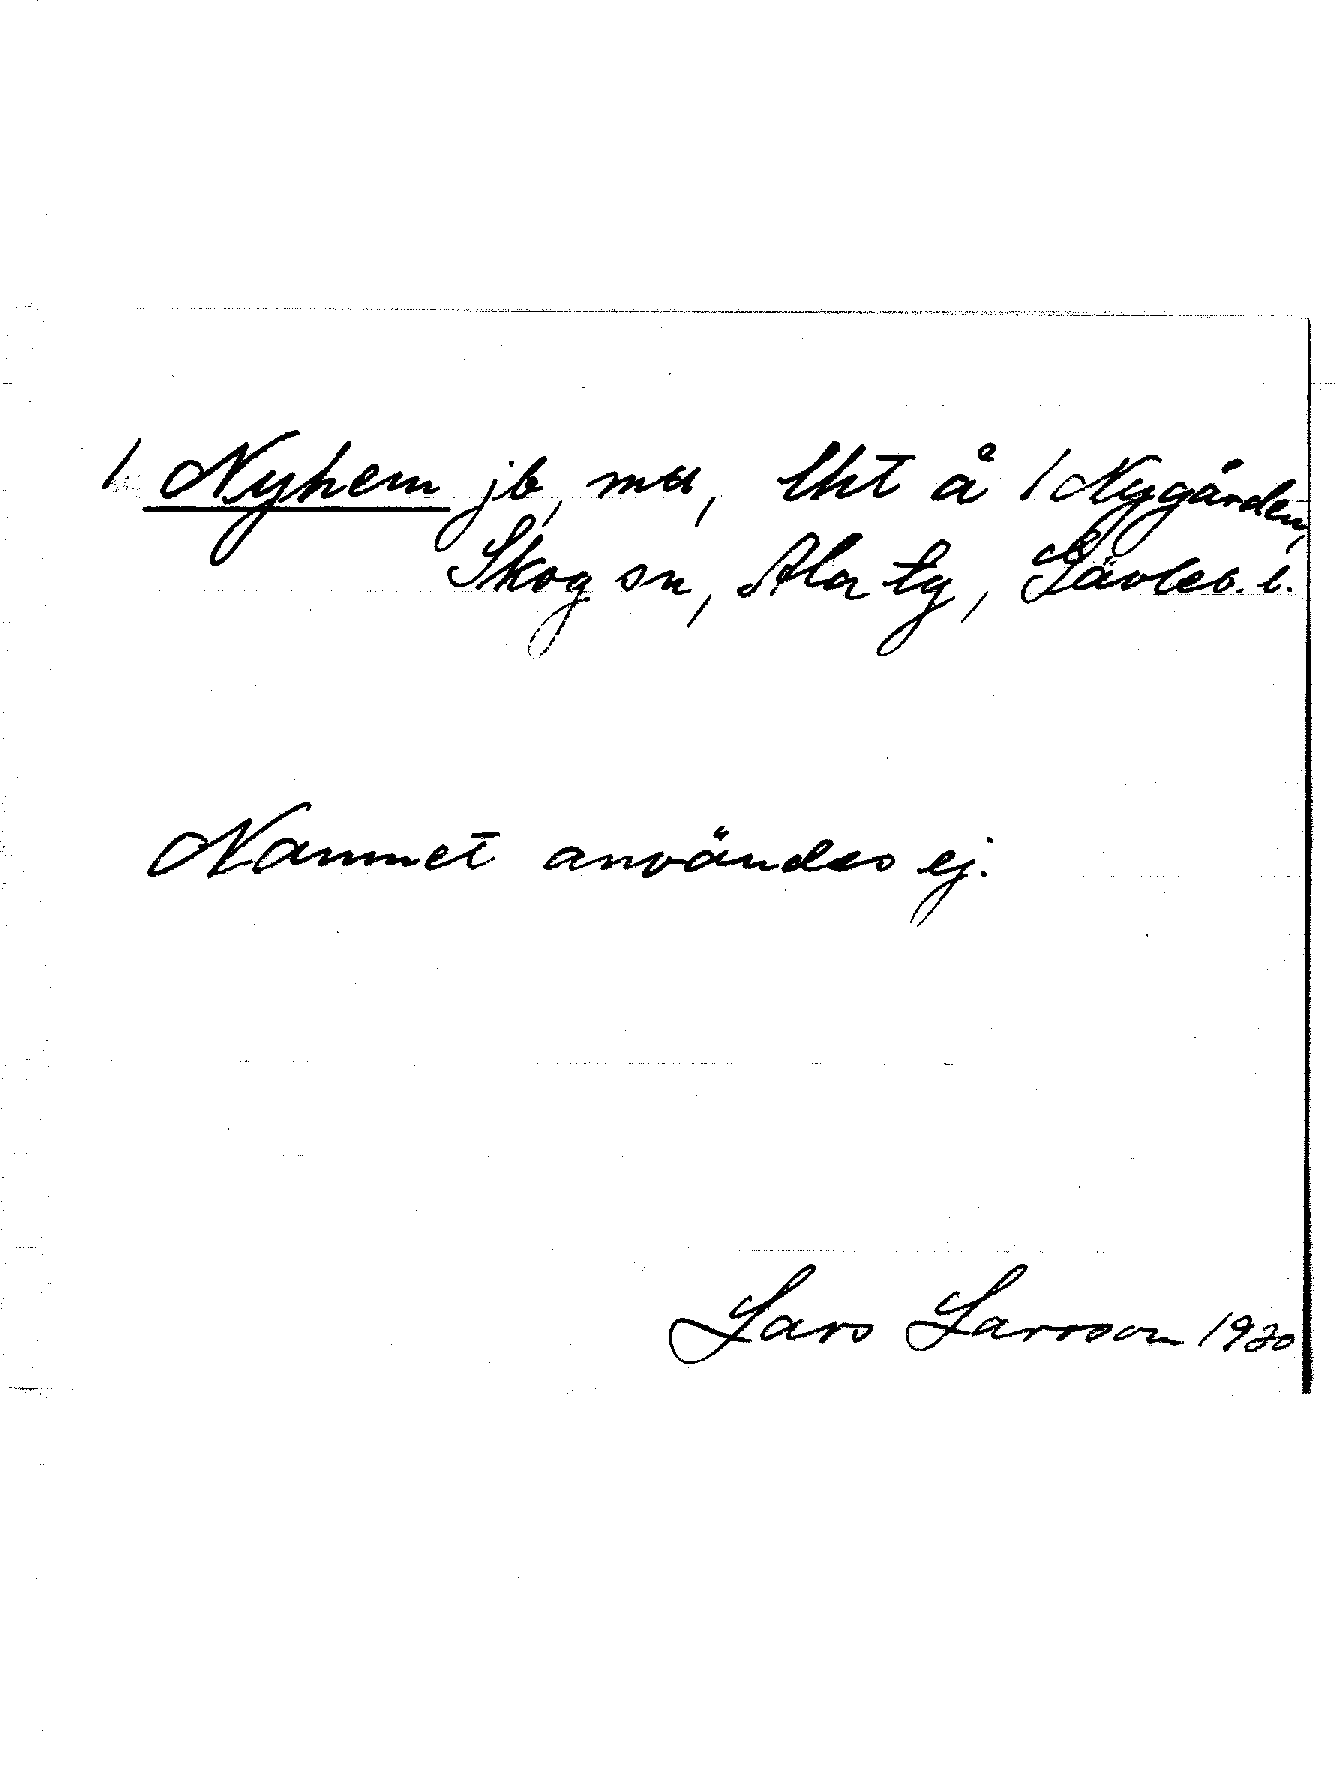 / Nyhem jb, mtl, lht å / Nygården,
Skog sn, Ala tg, Gävleb. l.
Namnet användes ej.
Lars Larsson 1930